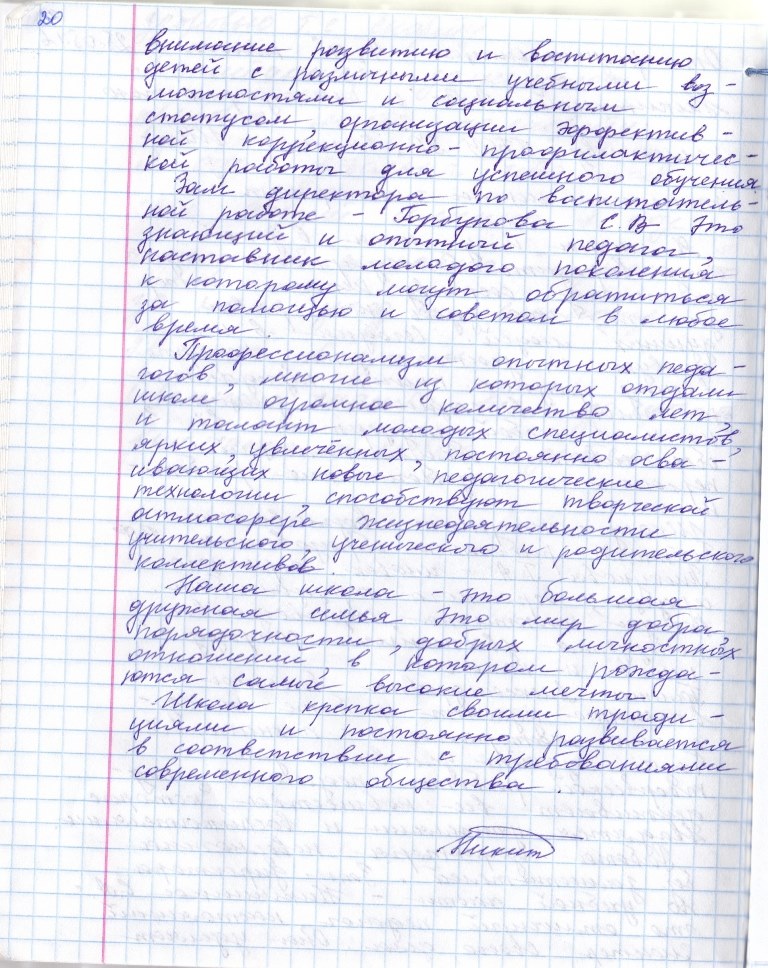 20
внимание развитию и воспитанию
детей с различными учебными воз-
можностями и социальным
статусом, организации эффектив-
ной коррекционно-профилактичес-
кой работы для успешного обучения
Зам директора по воспитатель-
ной работе - Горбунова С.В это
знающий и опытный педагог,
наставник молодого поколения
к которому могут обратиться
за помощью и советом в любое
время.
Профессионализм опытных педа-
гогов, многие из которых отдали
школе огромное количество лет,
и талант молодых специалистов,
ярких, увлечённых, постоянно осва-
ивающих новые педагогические
технологии, способствуют творческой
атмосфере жизнедеятельности
учительского, ученического и родительского
коллективов
Наша школа - это большая
дружная семья это мир добра,
порядочности, добрых личностных
отношений, в котором рожда-
ются самые высокие мечты
Школа крепка своими тради-
циями и постоянно развивается
в соответствии с требованиями
современного общества.